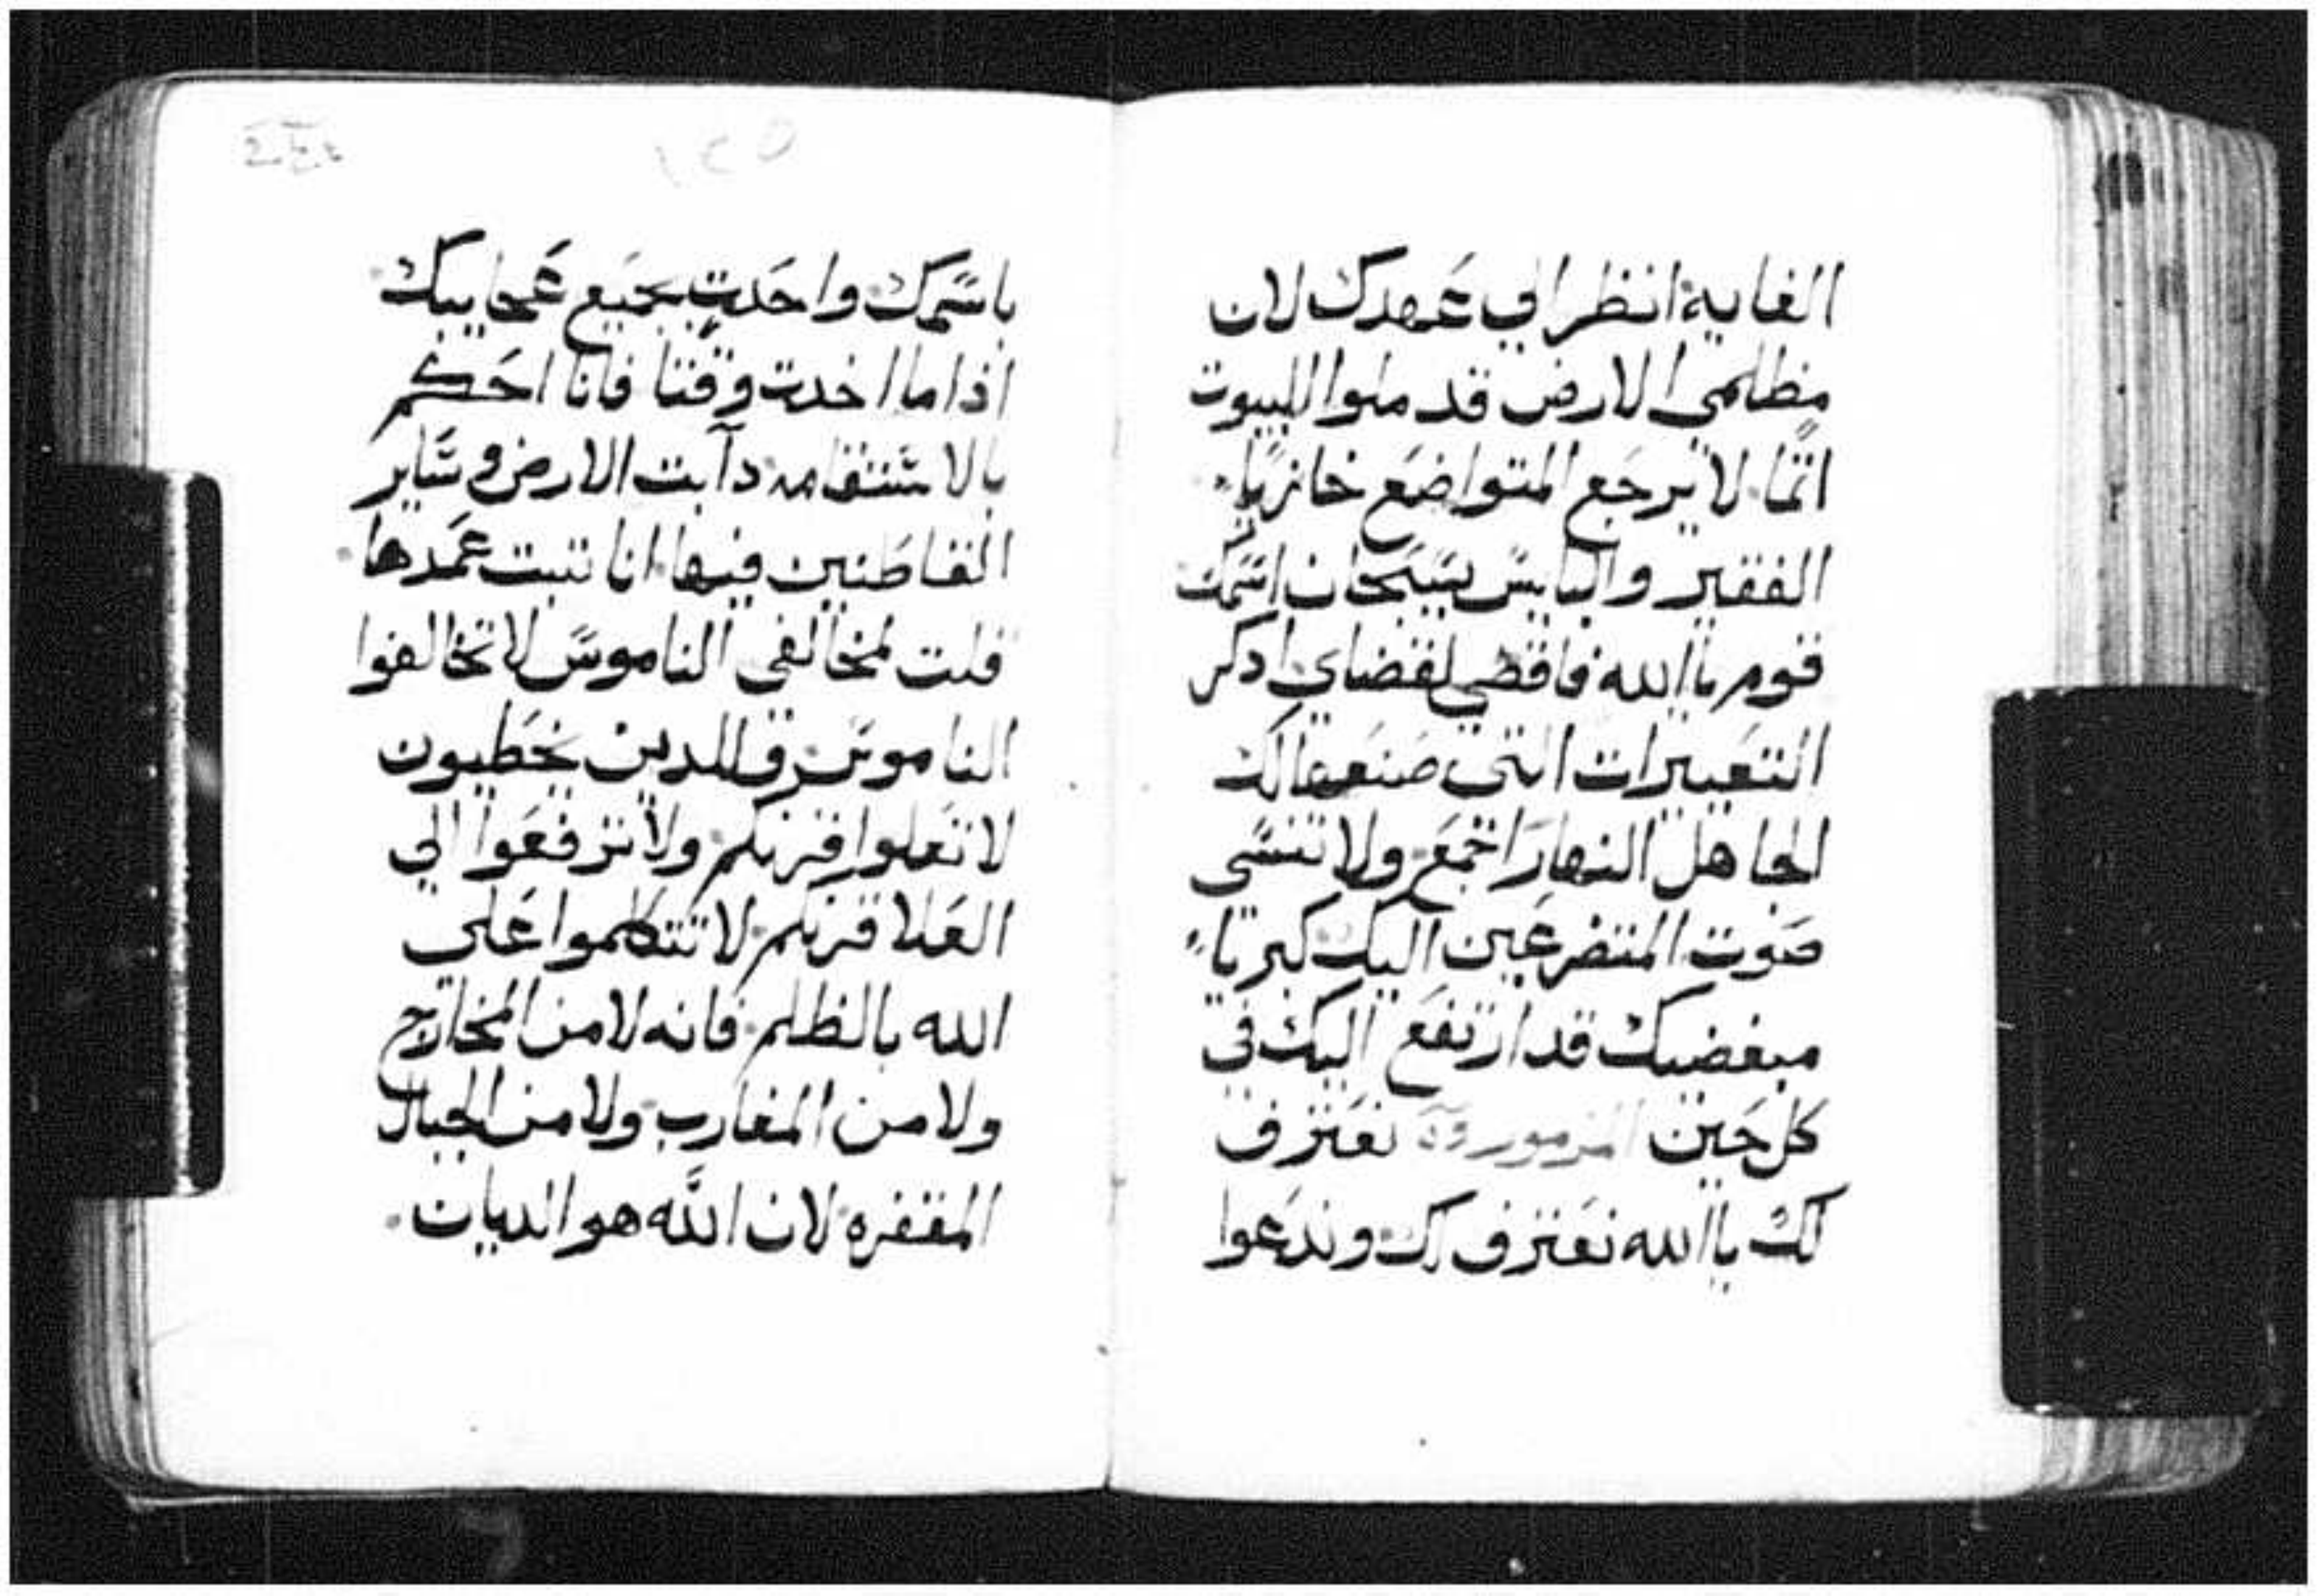 الغايه انظر الي عهدك لان
مظلمي الارض قد ملوا البيوت
اثما لا يرجع المتواضع خازيا
الفقير والبايس يسبحان اسمك
قوم يا الله فاقضي لقضاي ادكر
التعييرات التي صنعها لك
الجاهل النهار اجمع ولا تنسي
صوت المتضرعين اليك كبرياء
مبغضيك قد ارتفع اليك في
كل حين المزمور نعترف
لك يا الله نعترف لك وندعوا
١٤٥
باسمك واحدت بجميع عجايبك
اذا ما اخدت وقتا فانا احكم
بالاستقامه دابت الارض وساير
القاطنين فيها انا تبت عمدها
قلت لمخالفي الناموس لا تخالفوا
الناموس وللدين يخطيون
لا تعلوا قرنكم ولا ترفعوا الي
العلا قرنكم لا تتكلموا علي
الله بالظلم فانه لا من المخارج
ولا من المغارب ولا من الجبال
المقفره لان الله هو الديان